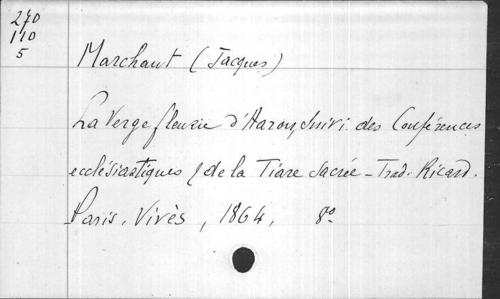 270
110
5
Marchant (Jacques)
La Verge fleurie d'Aaron, suivi des Conférences
ecclésiastiques & de la Tiare Sacrée - Trad. Ricard.
Paris, Vivès, 1864, 8º